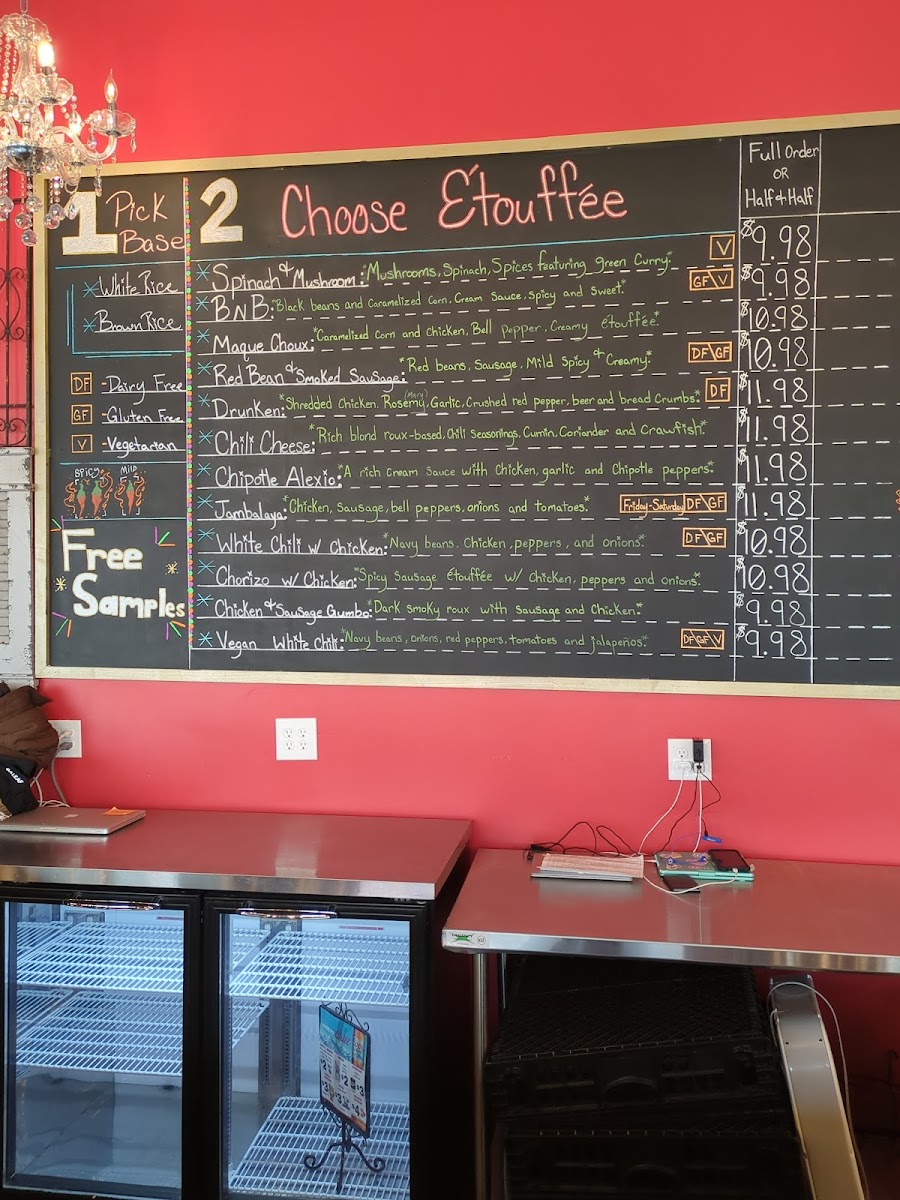 1 Pick Base
* White Rice
* Brown Rice
DF - Dairy Free
GF - Gluten Free
V - Vegetarian
Spicy Mild
Free
Samples
2 Choose Étouffée
Full Order
OR
Half & Half
* Spinach & Mushroom: "Mushrooms, Spinach, Spices featuring green Curry" V $9.98
* BNB: "Black beans and Caramelized Corn, Cream Sauce, Spicy and Sweet" GF\V $9.98
* Maque Choux: "Caramelized Corn and Chicken, Bell pepper, Creamy étouffée" $10.98
* Red Bean & Smoked Sausage: "Red beans, Sausage, Mild Spicy & Creamy" DF\GF $10.98
* Drunken: "Shredded Chicken, Rosemy (mary), Garlic, Crushed red pepper, beer and bread Crumbs" DF $11.98
* Chili Cheese: "Rich blond roux-based, Chili Seasonings, Cumin, Coriander and Crawfish" $11.98
* Chipotle Alexio: "A rich Cream Sauce with Chicken, garlic and Chipotle peppers" $11.98
* Jambalaya: "Chicken, Sausage, bell peppers, onions and tomatoes" Friday-Saturday DF\GF $11.98
* White Chili w/ Chicken: "Navy beans, Chicken, peppers, and onions" DF\GF $10.98
* Chorizo w/ Chicken: "Spicy Sausage étouffée w/ Chicken, peppers and onions" $10.98
* Chicken & Sausage Gumbo: "Dark smoky roux with sausage and Chicken" $9.98
* Vegan White Chili: "Navy beans, onions, red peppers, tomatoes and jalapeños" DF\GF\V $9.98